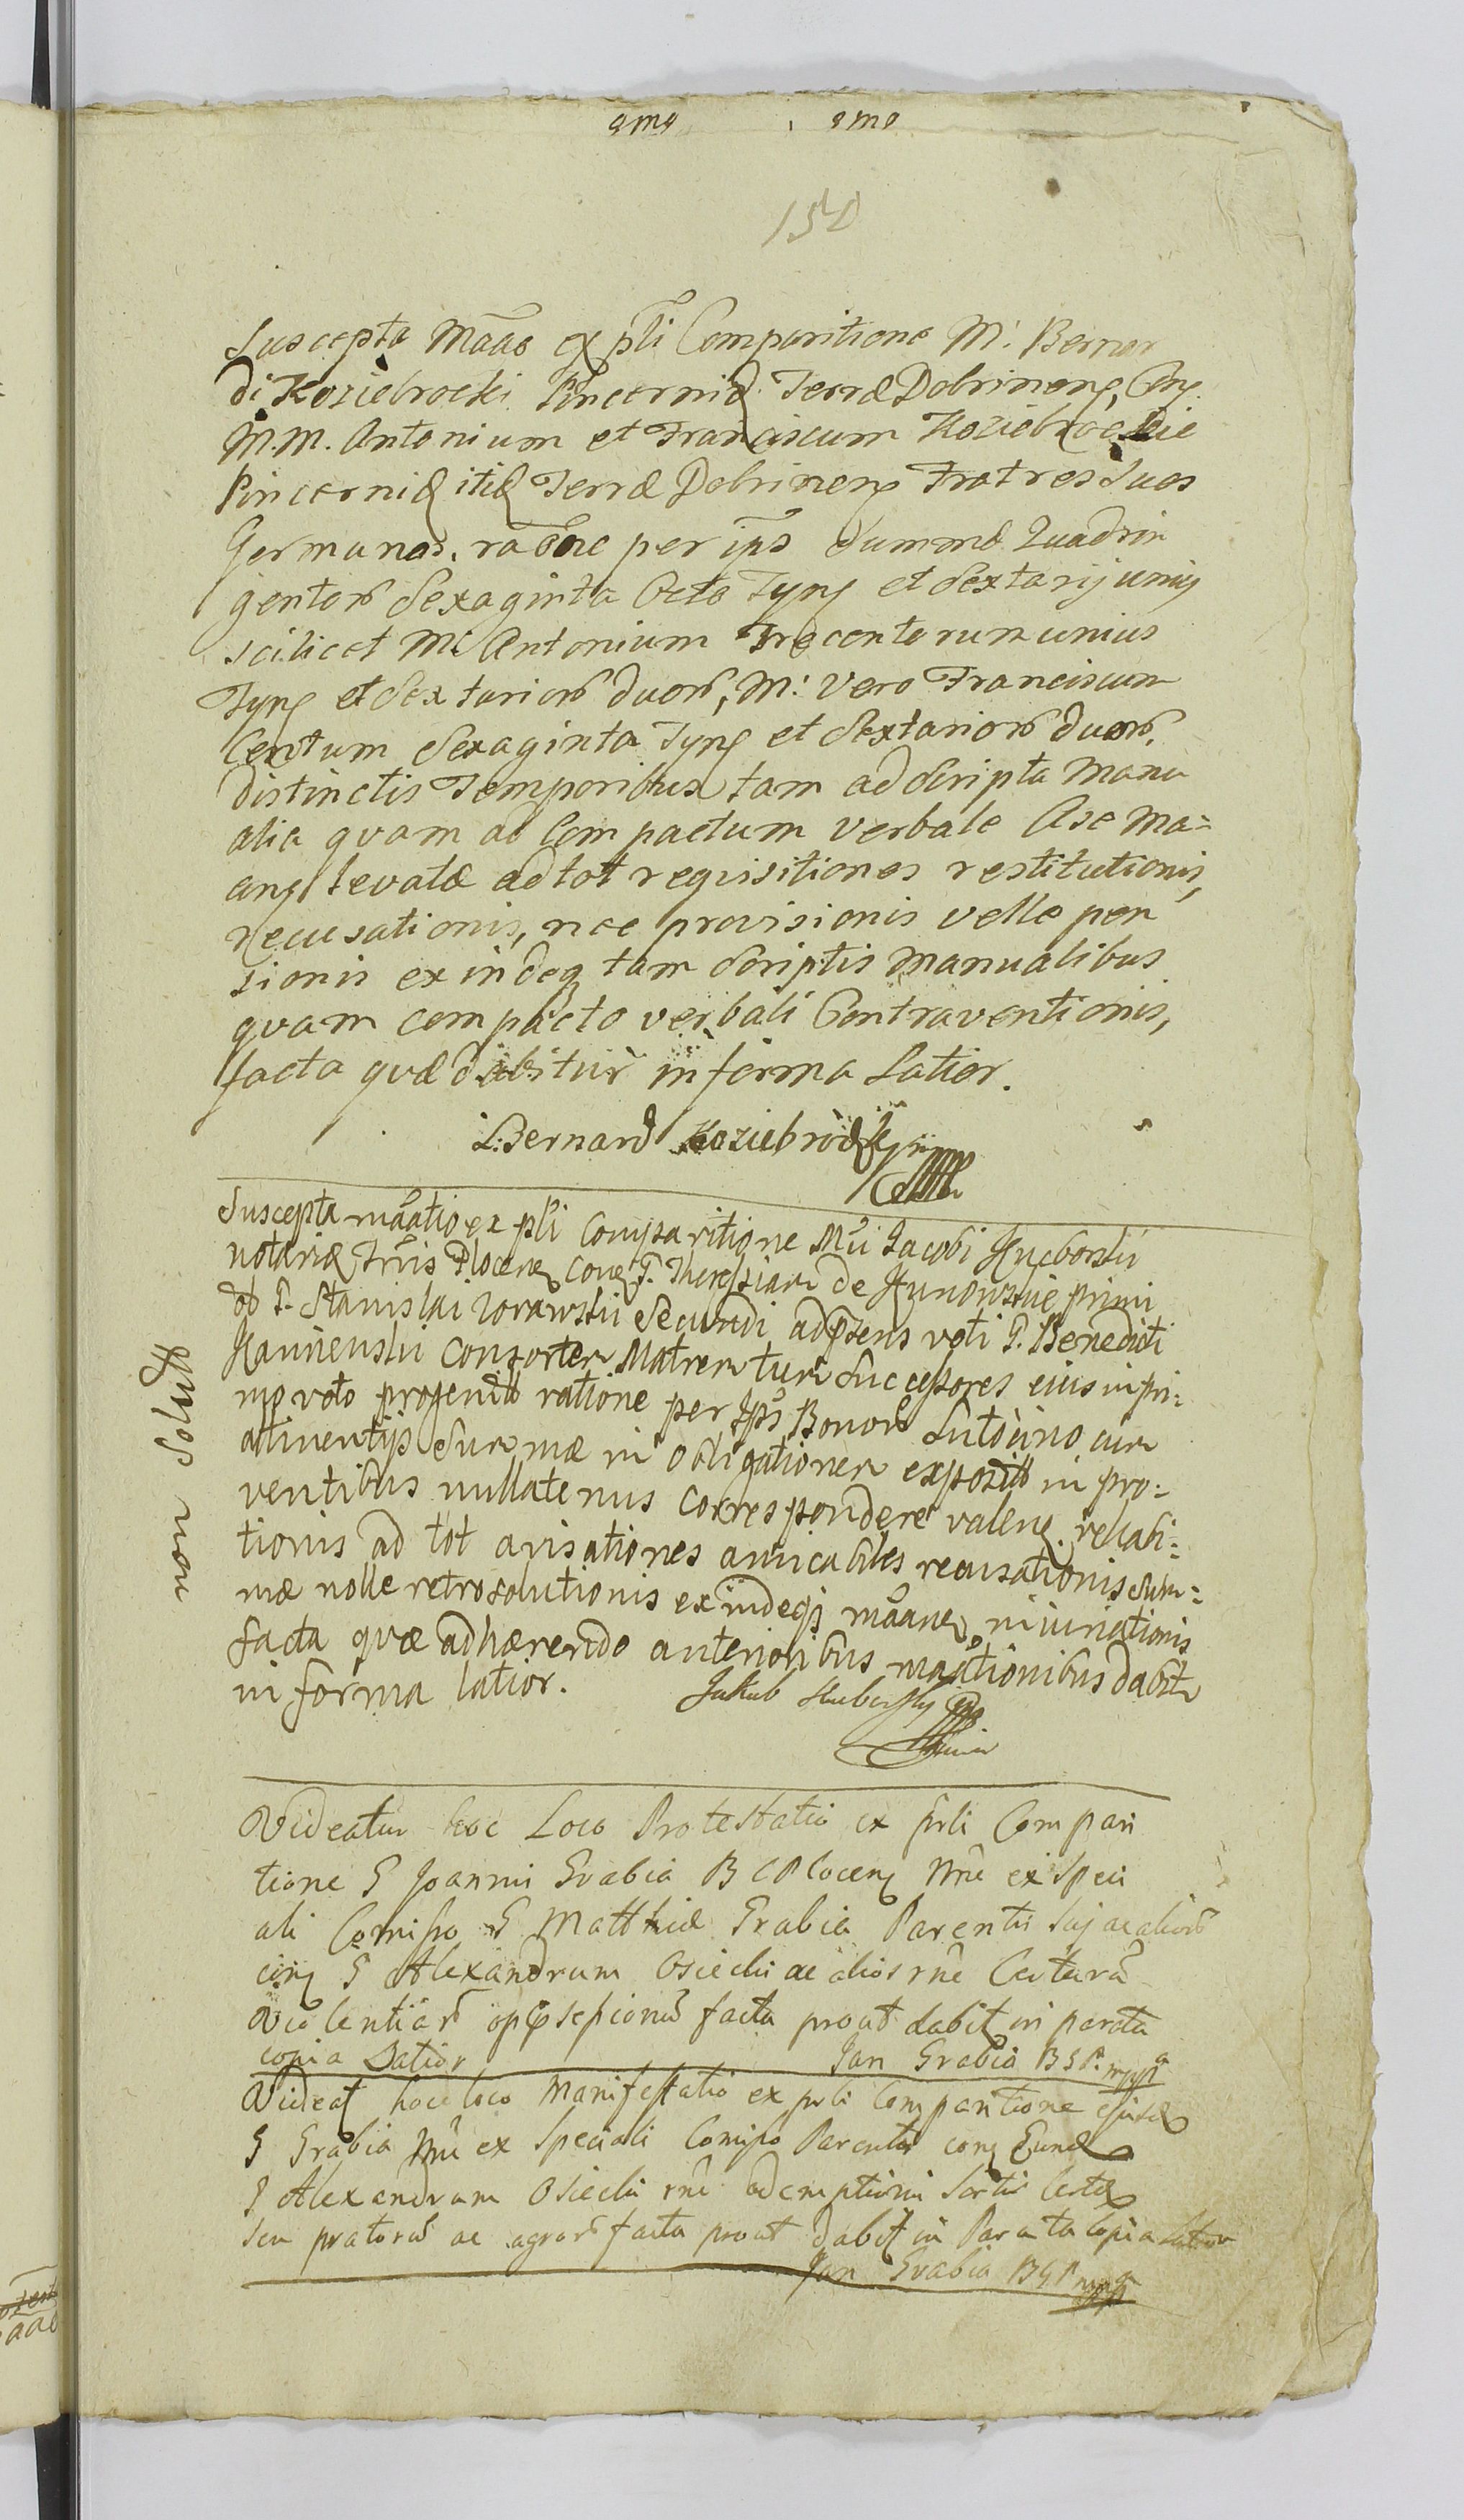 150
Suscepta Maão ex pñti Comparitione M: Bernar
di Koziebrocki Pincernid Terræ Dobrinens, Cong
M.M. Antonium et Franciscum Koziebrockie
Pincernid itid Terræ Dobrinens Fratres Suos
Germanos, raõne per ips Summæ Quadrin
gentorũ Sexaginta Octo Tynf et Sextarij unius
scilicet M: Antonium Trecentorum unius
Tynf et Sextariorũ duorũ, M: Vero Franciscum
Centum Sexaginta Tynf et Sextariorũ duorũ,
distinctis Temporibus tam ad Scripta Manu
alia quam ad Compactum verbale A se Ma=
ang levatæ ad tot requisitiones restitutionis,
recusationis, nec provisionis velle pen
sionis exindeq tam Scriptis Manualibus
quam compacto verbali Contraventionis,
facta quæ dabitur in forma Latior.
Bernard Koziebrodzky
Suscepta mãatio ex pñti Comparitione Mci Jacobi Hucborskii
notarij Trris Plocens cong G. Theressiam de Kunowskie primi
ob G. Stanislai Zorawskii Secundi ad præsens voti G. Benedicti
Kamienskii Consortem Matrem tum Successores eius in pri=
mo voto progenitt ratione per Ips Bonorũ Lutocino cum
attinentijs Summæ in obligationem exposit in pro=
ventibus nullatenus correspondere valens reliali=
tionis ad tot avisationes amicabiles recusationis Sum=
mæ nolle retrosolutionis exindeqs mãang iniuriationis
facta quæ adhærendo anterioribus maãtionibus dabitr
in forma latior.
Jakub
non Solutt
Videatur hoc Loco Protestatio ex pñti Compari
tione G Joannis Grabia B C Plocens Mne ex Speci
ali Comisso G Matthiæ Grabia Parentis Suj ac aliorũ
cong G Alexandrum Osiecki ac alios rñe Certarũ
Violentiarũ oppsepcionũ facta prout dabit in parata
copia Latior
Jan Grabia B G P. mppa
Videat hoce loco Manifestatio ex pñti Comparitione ejusd
G Grabia Mne ex Speciali Comisso Parentis cong Eund
G Alexandrum Osiecki rñe ademptionis Sortis Certæ
seu pratorũ ac agrorũ facta prout dabit in Parata Copia Latior
Jan Grabia B G P mppa